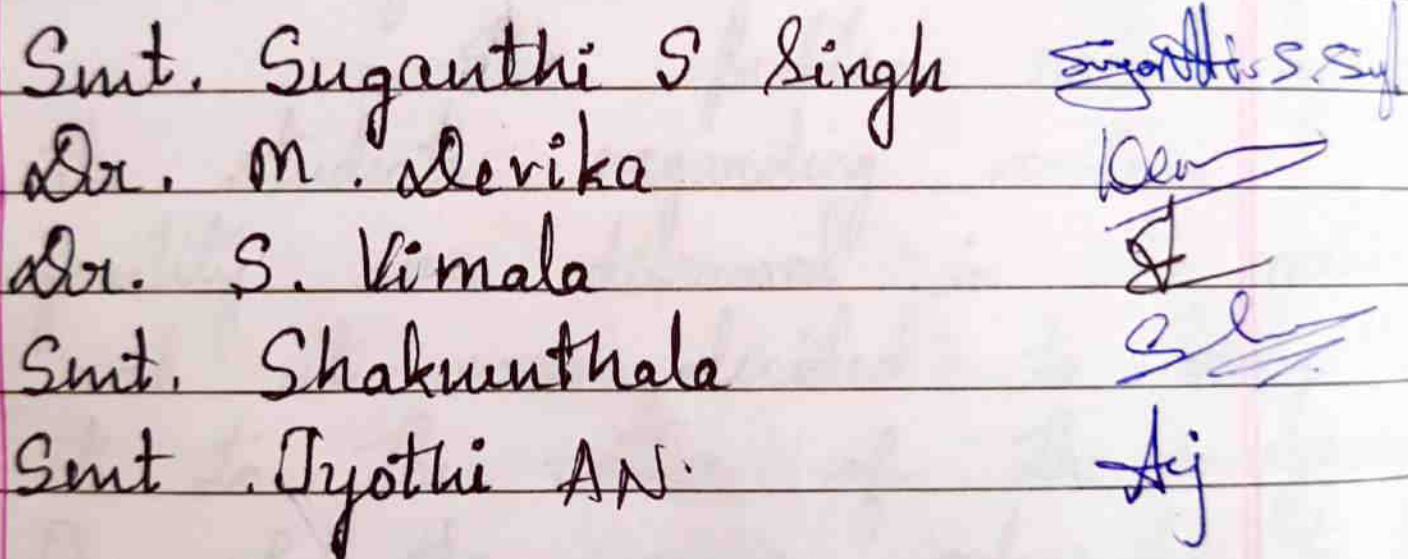 Smt. Suganthi S Singh Suganthi S. Sin
Dr. M. Devika Dev
Dr. S. Vimala
Smt. Shakuunthala
Smt. Jyothi AN. Aj